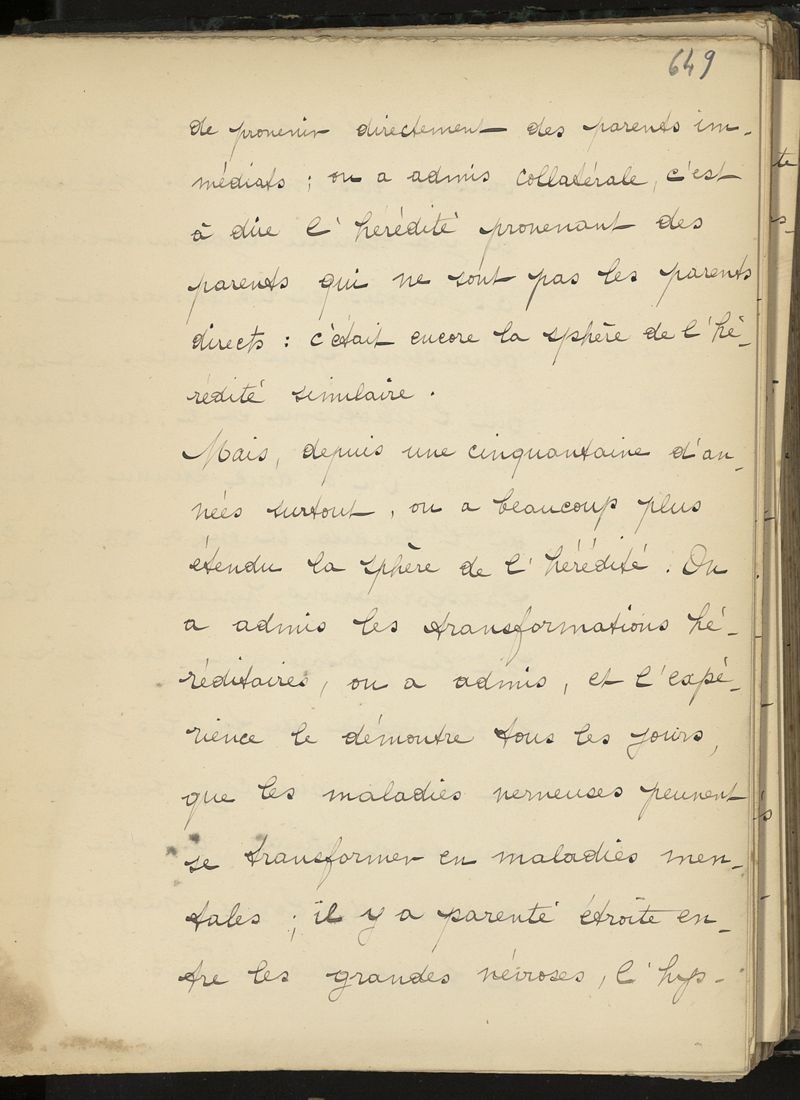 649
de provenir directement des parents im-
médiats ; on a admis collatérale, c'est
à dire l'hérédité provenant des
parents qui ne sont pas les parents
directs : c'était encore la sphère de l'hé-
rédité similaire.
Mais, depuis une cinquantaine d'an-
nées surtout, on a beaucoup plus
étendu la sphère de l'hérédité. On
a admis les transformations hé-
réditaires, on a admis, et l'expé-
rience le démontre tous les jours,
que les maladies nerveuses peuvent
se transformer en maladies men-
tales ; il y a parenté étroite en-
tre les grandes névroses, l'hys-